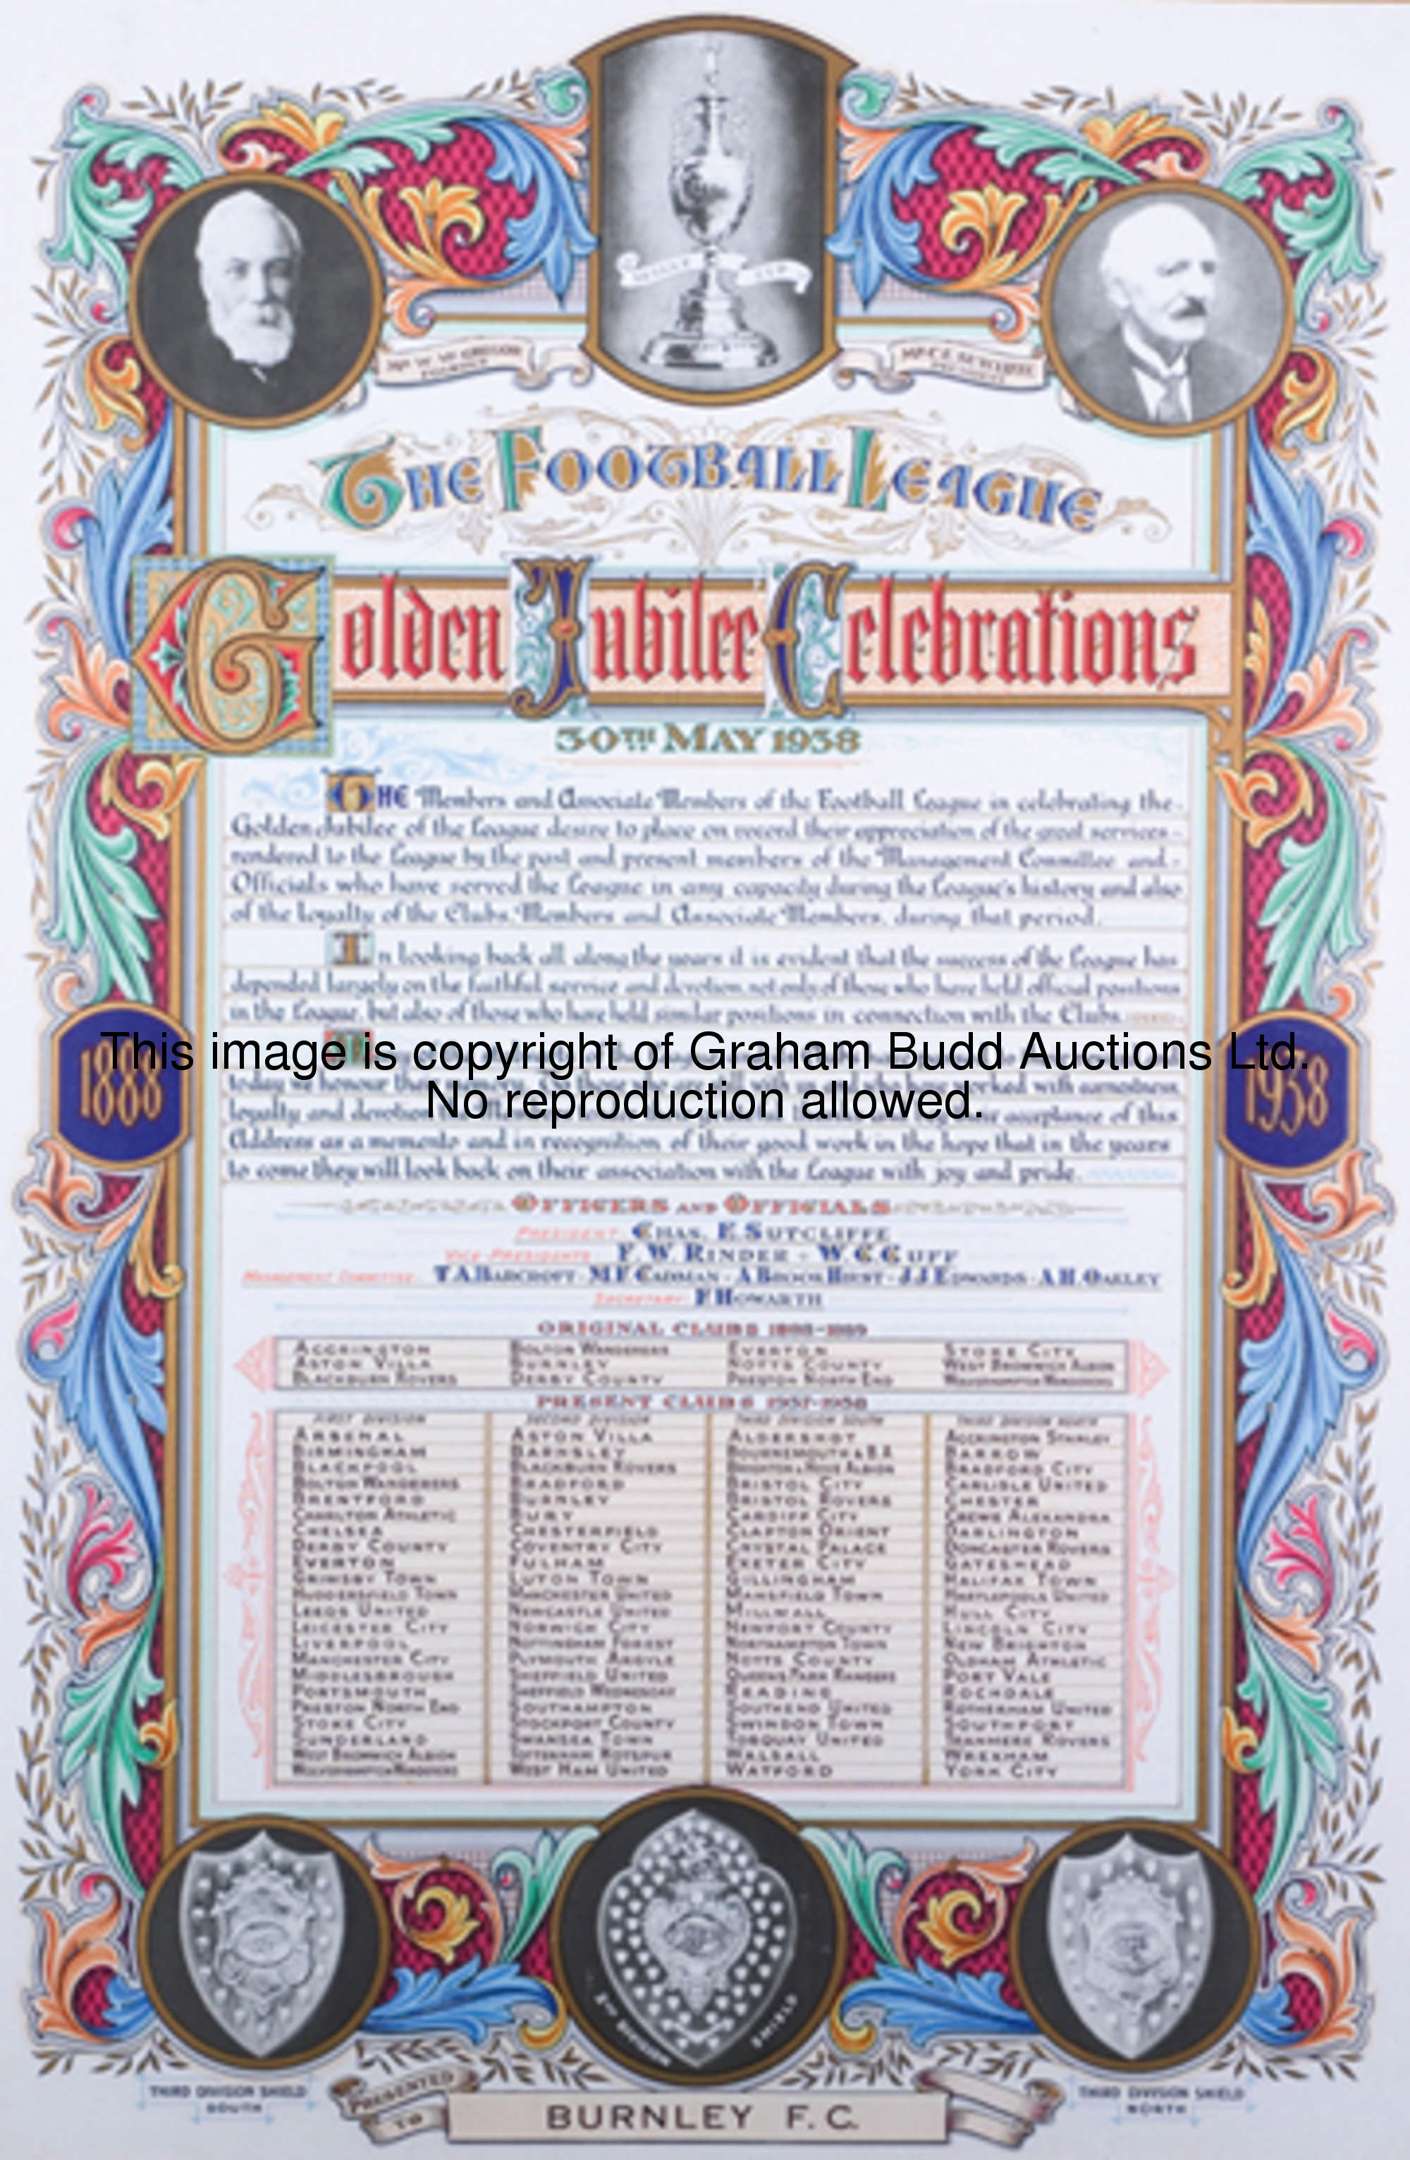 MR W. MCGREGOR
FOUNDER
LEAGUE CUP
MR C.E. SUTCLIFFE
PRESIDENT
THE FOOTBALL LEAGUE
Golden Jubilee Celebrations
30TH MAY 1938
THE Members and Associate Members of the Football League in celebrating the
Golden Jubilee of the League desire to place on record their appreciation of the great services
rendered to the League by the past and present members of the Management Committee and
Officials who have served the League in any capacity during the League's history and also
of the loyalty of the Clubs, Members and Associate Members, during that period.
In looking back all along the years it is evident that the success of the League has
depended largely on the faithful service and devotion not only of those who have held official positions
in the League, but also of those who have held similar positions in connection with the Clubs.
This image is copyright of Graham Budd Auctions Ltd.
No reproduction allowed.
1888
1938
today we honour their
worked with earnestness
loyalty and devotion
acceptance of this
Address as a memento and in recognition of their good work in the hope that in the years
to come they will look back on their association with the League with joy and pride.
OFFICERS AND OFFICIALS
PRESIDENT CHAS. E. SUTCLIFFE
VICE-PRESIDENTS F. W. RINDER - W. C. CUFF
MANAGEMENT COMMITTEE T.A. BARCROFT - M.F. CADMAN - A BROOK HIRST - J.J. EDWARDS - A.H. OAKLEY
SECRETARY F HOWARTH
ORIGINAL CLUBS 1888-1889
ACCRINGTON BOLTON WANDERERS EVERTON STOKE CITY
ASTON VILLA BURNLEY NOTTS COUNTY WEST BROMWICH ALBION
BLACKBURN ROVERS DERBY COUNTY PRESTON NORTH END WOLVERHAMPTON WANDERERS
PRESENT CLUBS 1937-1938
FIRST DIVISION SECOND DIVISION THIRD DIVISION SOUTH THIRD DIVISION NORTH
ARSENAL ASTON VILLA ALDERSHOT ACCRINGTON STANLEY
BIRMINGHAM BARNSLEY BOURNEMOUTH & B.A. BARROW
BLACKPOOL BLACKBURN ROVERS BRIGHTON & HOVE ALBION BRADFORD CITY
BOLTON WANDERERS BRADFORD BRISTOL CITY CARLISLE UNITED
BRENTFORD BURNLEY BRISTOL ROVERS CHESTER
CHARLTON ATHLETIC BURY CARDIFF CITY CREWE ALEXANDRA
CHELSEA CHESTERFIELD CLAPTON ORIENT DARLINGTON
DERBY COUNTY COVENTRY CITY CRYSTAL PALACE DONCASTER ROVERS
EVERTON FULHAM EXETER CITY GATESHEAD
GRIMSBY TOWN LUTON TOWN GILLINGHAM HALIFAX TOWN
HUDDERSFIELD TOWN MANCHESTER UNITED MANSFIELD TOWN HARTLEPOOLS UNITED
LEEDS UNITED NEWCASTLE UNITED MILLWALL HULL CITY
LEICESTER CITY NORWICH CITY NEWPORT COUNTY LINCOLN CITY
LIVERPOOL NOTTINGHAM FOREST NORTHAMPTON TOWN NEW BRIGHTON
MANCHESTER CITY PLYMOUTH ARGYLE NOTTS COUNTY OLDHAM ATHLETIC
MIDDLESBROUGH SHEFFIELD UNITED QUEENS PARK RANGERS PORT VALE
PORTSMOUTH SHEFFIELD WEDNESDAY READING ROCHDALE
PRESTON NORTH END SOUTHAMPTON SOUTHEND UNITED ROTHERHAM UNITED
STOKE CITY STOCKPORT COUNTY SWINDON TOWN SOUTHPORT
SUNDERLAND SWANSEA TOWN TORQUAY UNITED TRANMERE ROVERS
WEST BROMWICH ALBION TOTTENHAM HOTSPUR WALSALL WREXHAM
WOLVERHAMPTON WANDERERS WEST HAM UNITED WATFORD YORK CITY
2ND DIVISION SHIELD
THIRD DIVISION SHIELD
SOUTH
PRESENTED
TO
BURNLEY F.C.
THIRD DIVISION SHIELD
NORTH